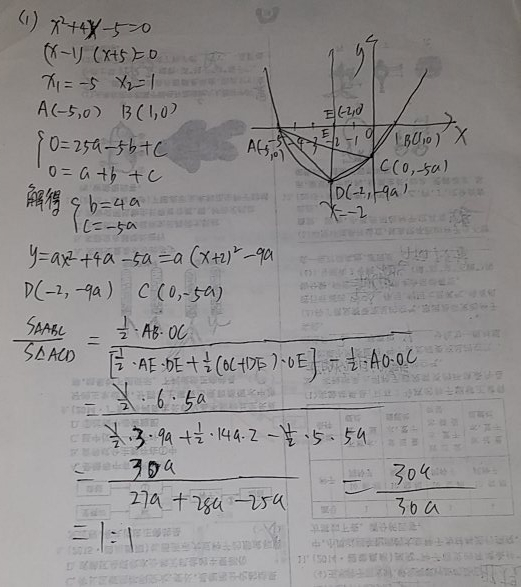 (1) x²+4x-5=0
(x-1)(x+5)=0
x₁=-5 x₂=1
A(-5,0) B(1,0)
{0=25a-5b+c
0=a+b+c
解得 {b=4a
c=-5a
y=ax²+4a-5a=a(x+2)²-9a
D(-2,-9a) C(0,-5a)
S△ABC/S△ACD = ½·AB·OC/([½·AE·DE+½(OC+DE)·OE]-½·AO·OC)
= ½·6·5a/(½·3·9a+½·14a·2-½·5·5a)
= 30a/(27a+28a-25a) = 30a/30a
=1:1
y
E(-2,0)
A(-5,0)
-5 -4 -3 E -2 -1 O 1 B(1,0) X
C(0,-5a)
D(-2,-9a)
x=-2